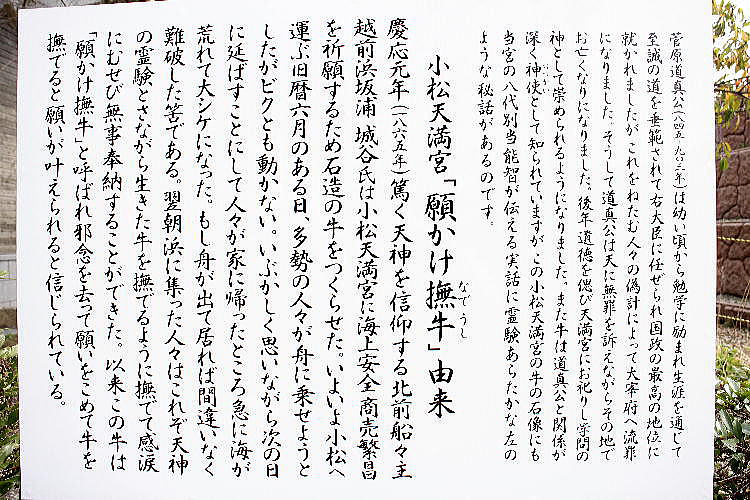 菅原道真公(八四五-九〇三年)は幼い頃から勉学に励まれ生涯を通じて
至誠の道を垂範されて右大臣に任ぜられ国政の最高の地位に
就かれましたがこれをねたむ人々の偽計によって大宰府へ流罪
になりました。そうして道真公は天に無罪を訴えながらその地で
お亡くなりになりました。後年道徳を偲び天満宮にお祀りし学問の
神として崇められるようになりました。また牛は道真公と関係が
深く神使として知られていますがこの小松天満宮の牛の石像にも
当宮の八代別当能智が伝える実話に霊験あらたかな左の
ような秘話があるのです。
小松天満宮「願かけ撫牛」由来
なでうし
慶応元年(一八六五年)篤く天神を信仰する北前船々主
越前浜坂浦 城谷氏は小松天満宮に海上安全 商売繁昌
を祈願するため石造の牛をつくらせた。いよいよ小松へ
運ぶ旧暦六月のある日、多勢の人々が舟に乗せようと
したがビクとも動かない。いぶかしく思いながら次の日
に延ばすことにして人々が家に帰ったところ急に海が
荒れて大シケになった。もし舟が出て居れば間違いなく
難破した筈である。翌朝浜に集った人々はこれぞ天神
の霊験とさながら生きた牛を撫でるように撫でて感涙
にむせび無事奉納することができた。以来この牛は
「願かけ撫牛」と呼ばれ邪念を去って願いをこめて牛を
撫でると願いが叶えられると信じられている。